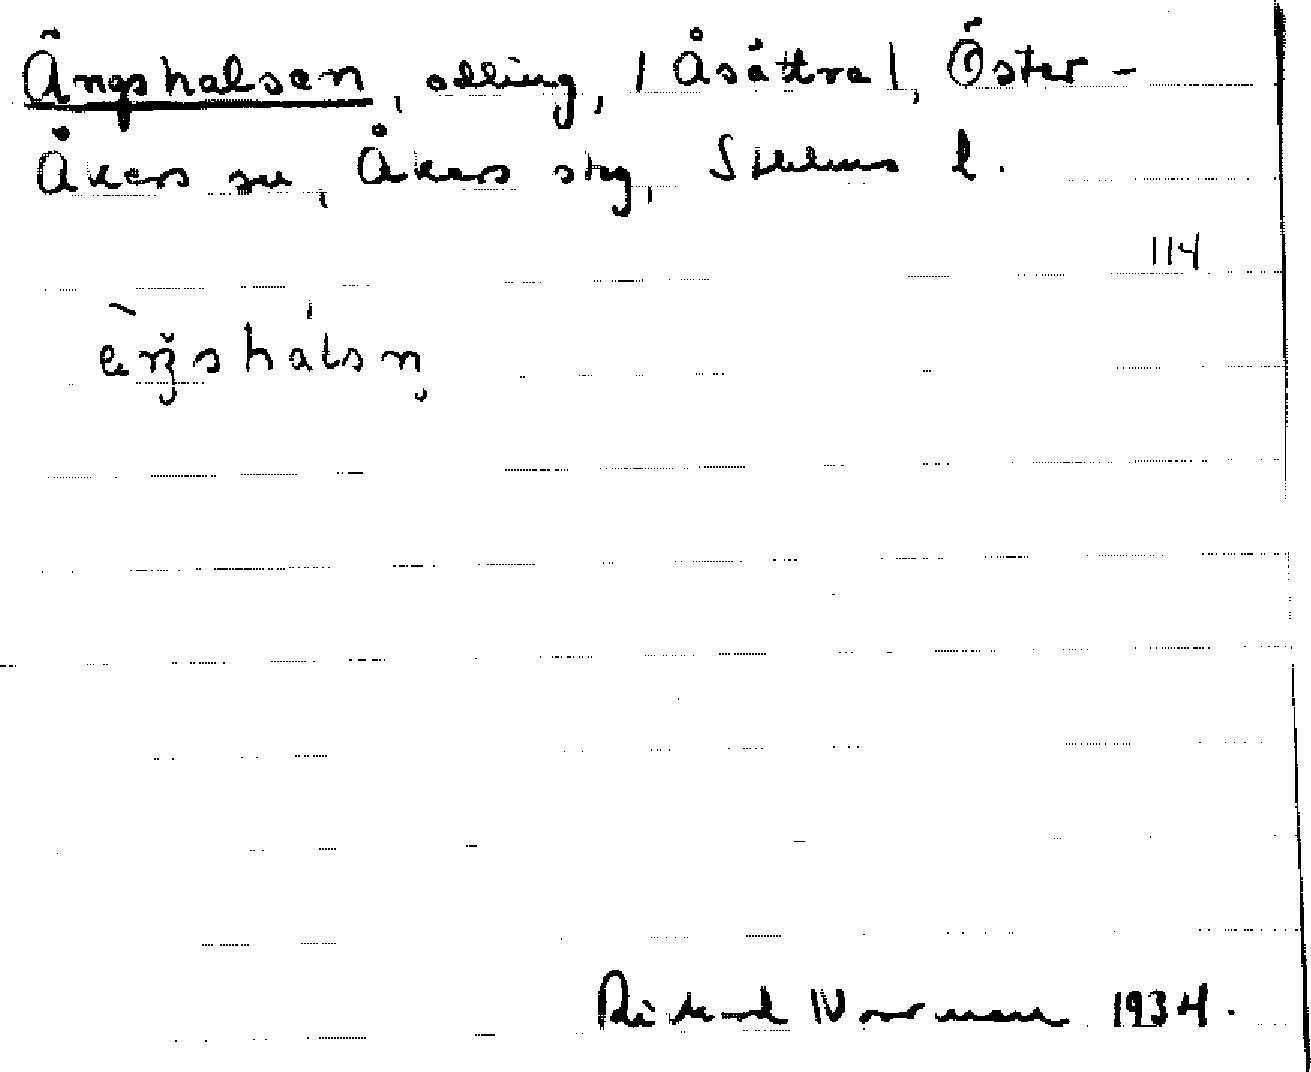 Ängshalsen, odling, | Åsättra |, Öster-
Åkers sn, Åkers skg, Sthlms l.
114
èŋshálsn̥
Rickard Norrman 1934.